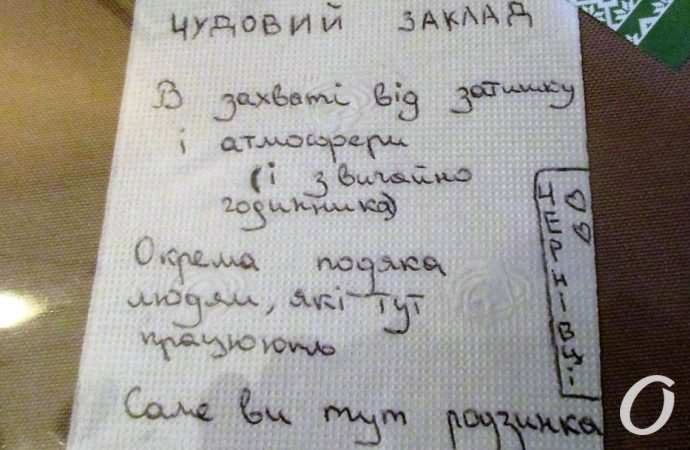 ЧУДОВИЙ ЗАКЛАД
В захваті від затишку
і атмосфери
(і звичайно
годинника)
Окрема подяка
людям, які тут
працюють
Саме ви тут родзинка
ЧЕРНІВЦІ